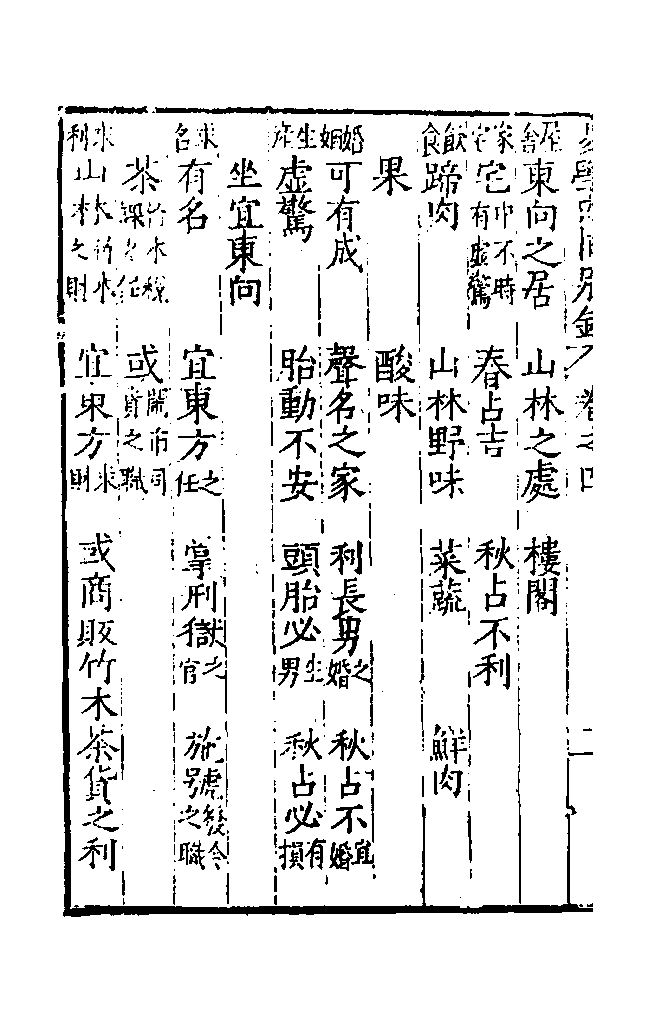 易學 別錄 卷之四 二
屋舍 東向之居 山林之處 樓閣
家宅 宅中不時有虛驚 春占吉 秋占不利
飲食 蹄肉 山林野味 菜蔬 鮮肉
果 酸味
婚姻 可有成 聲名之家 利長男之婚 秋占不宜婚
生産 虛驚 胎動不安 頭胎必生男 秋占必有損
坐宜東向
求名 有名 宜東方之任 掌刑獄之官 施號發令之職
茶竹木稅課之任 或鬧市司貨之職
求利 山林竹木之財 宜東方求財 或商販竹木茶貨之利